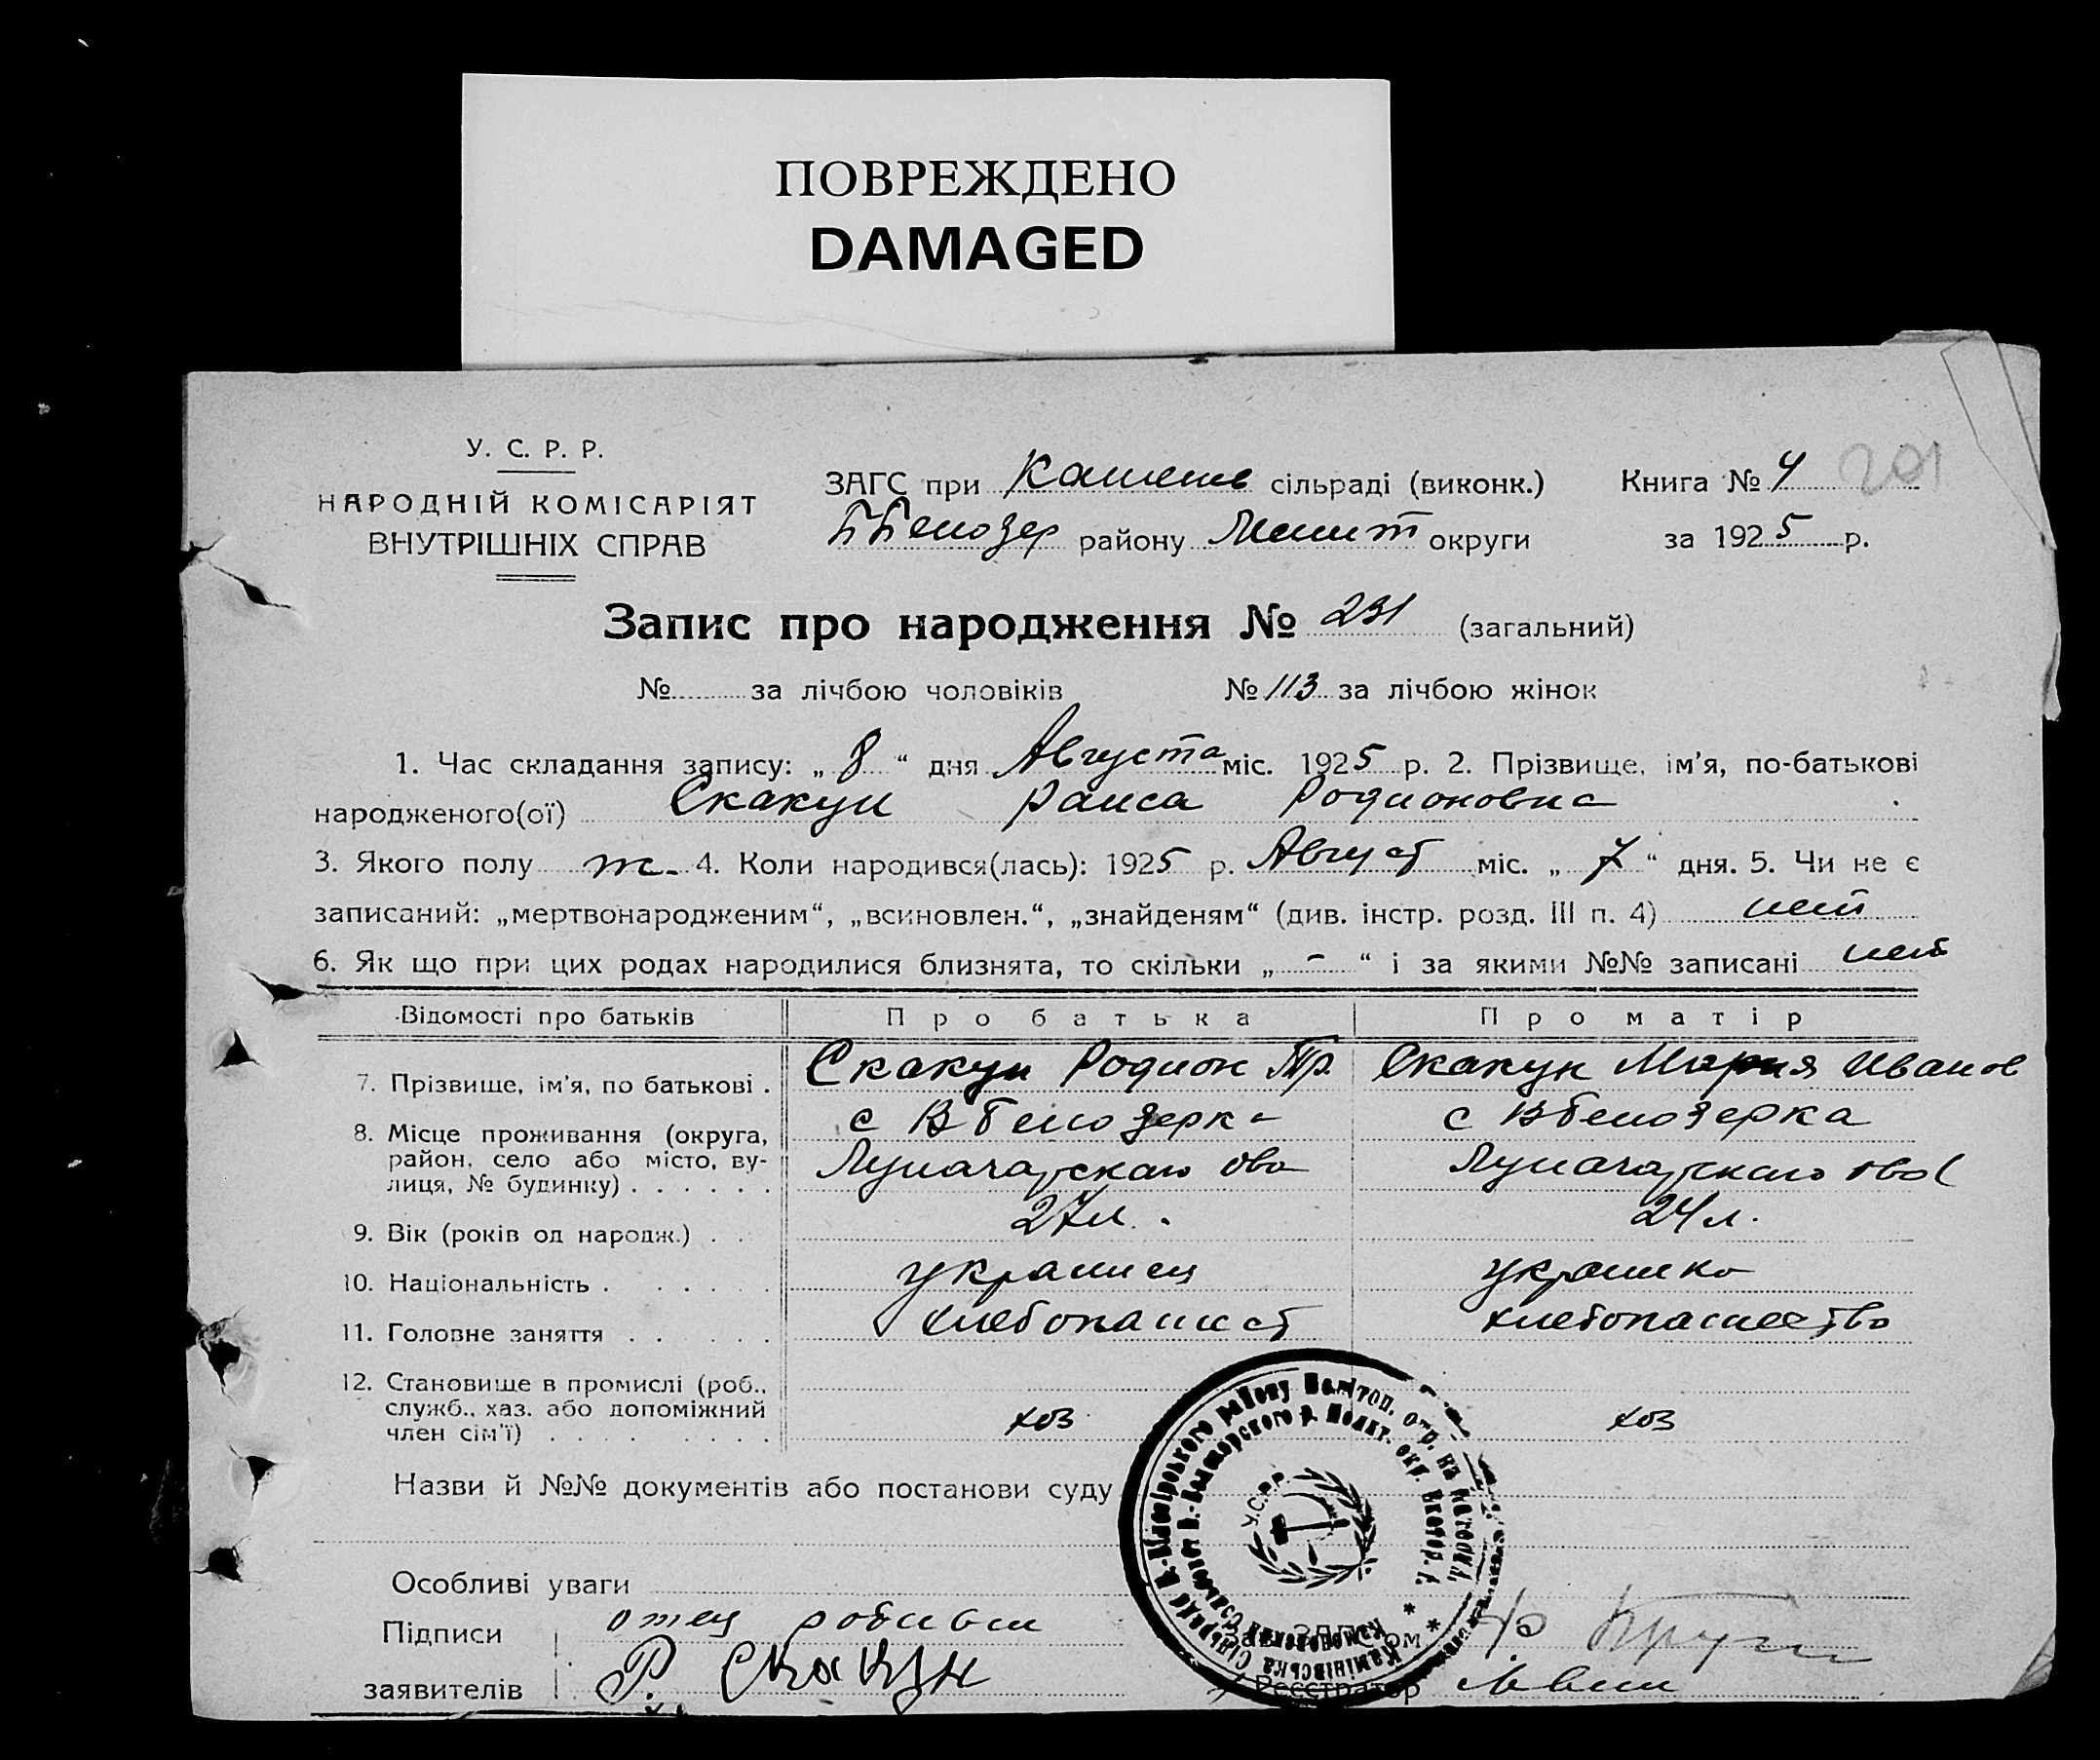 ПОВРЕЖДЕНО
DAMAGED
У. С. Р. Р.
НАРОДНІЙ КОМІСАРІЯТ
ВНУТРІШНІХ СПРАВ
ЗАГС при сільраді (виконк.)
району округи
Книга № 4 201
за 1925 р.
Запис про народження № 231 (загальний)
№ за лічбою чоловіків № 113 за лічбою жінок
1. Час складання запису: „ 8 “ дня Августа міс. 1925 р. 2. Прізвище, ім’я, по-батькові
народженого(ої) Скакун Раиса Родионовна
3. Якого полу ж. 4. Коли народився(лась): 1925 р. Август міс. „ 7 “ дня. 5. Чи не є
записаний: „мертвонародженим“, „всиновлен.“, „знайденям“ (див. інстр. розд. III п. 4) нет
6. Як що при цих родах народилися близнята, то скільки „ - “ і за якими №№ записані нет
Відомості про батьків Про батька Про матір
7. Прізвище, ім’я, по батькові . Скакун Родион Тр. Скакун Мария Иванов
8. Місце проживання (округа, район, село або місто, вулиця, № будинку) . . . . . .
с В Белозерка с В Белозерка
9. Вік (років од народж.) . . 27 л. 24 л.
10. Національність . . . . . . украинец украинка
11. Головне заняття . . . . . хлебопашест хлебопашество
12. Становище в промислі (роб.,
служб., хаз. або допоміжний
член сім’ї) . . . . . . . . хоз хоз
Назви й №№ документів або постанови суду
У.С.Р.Р.
Особливі уваги
Підписи отец
заявителів Р. Скакун
Зав. ЗАГС’ом
Реєстратор